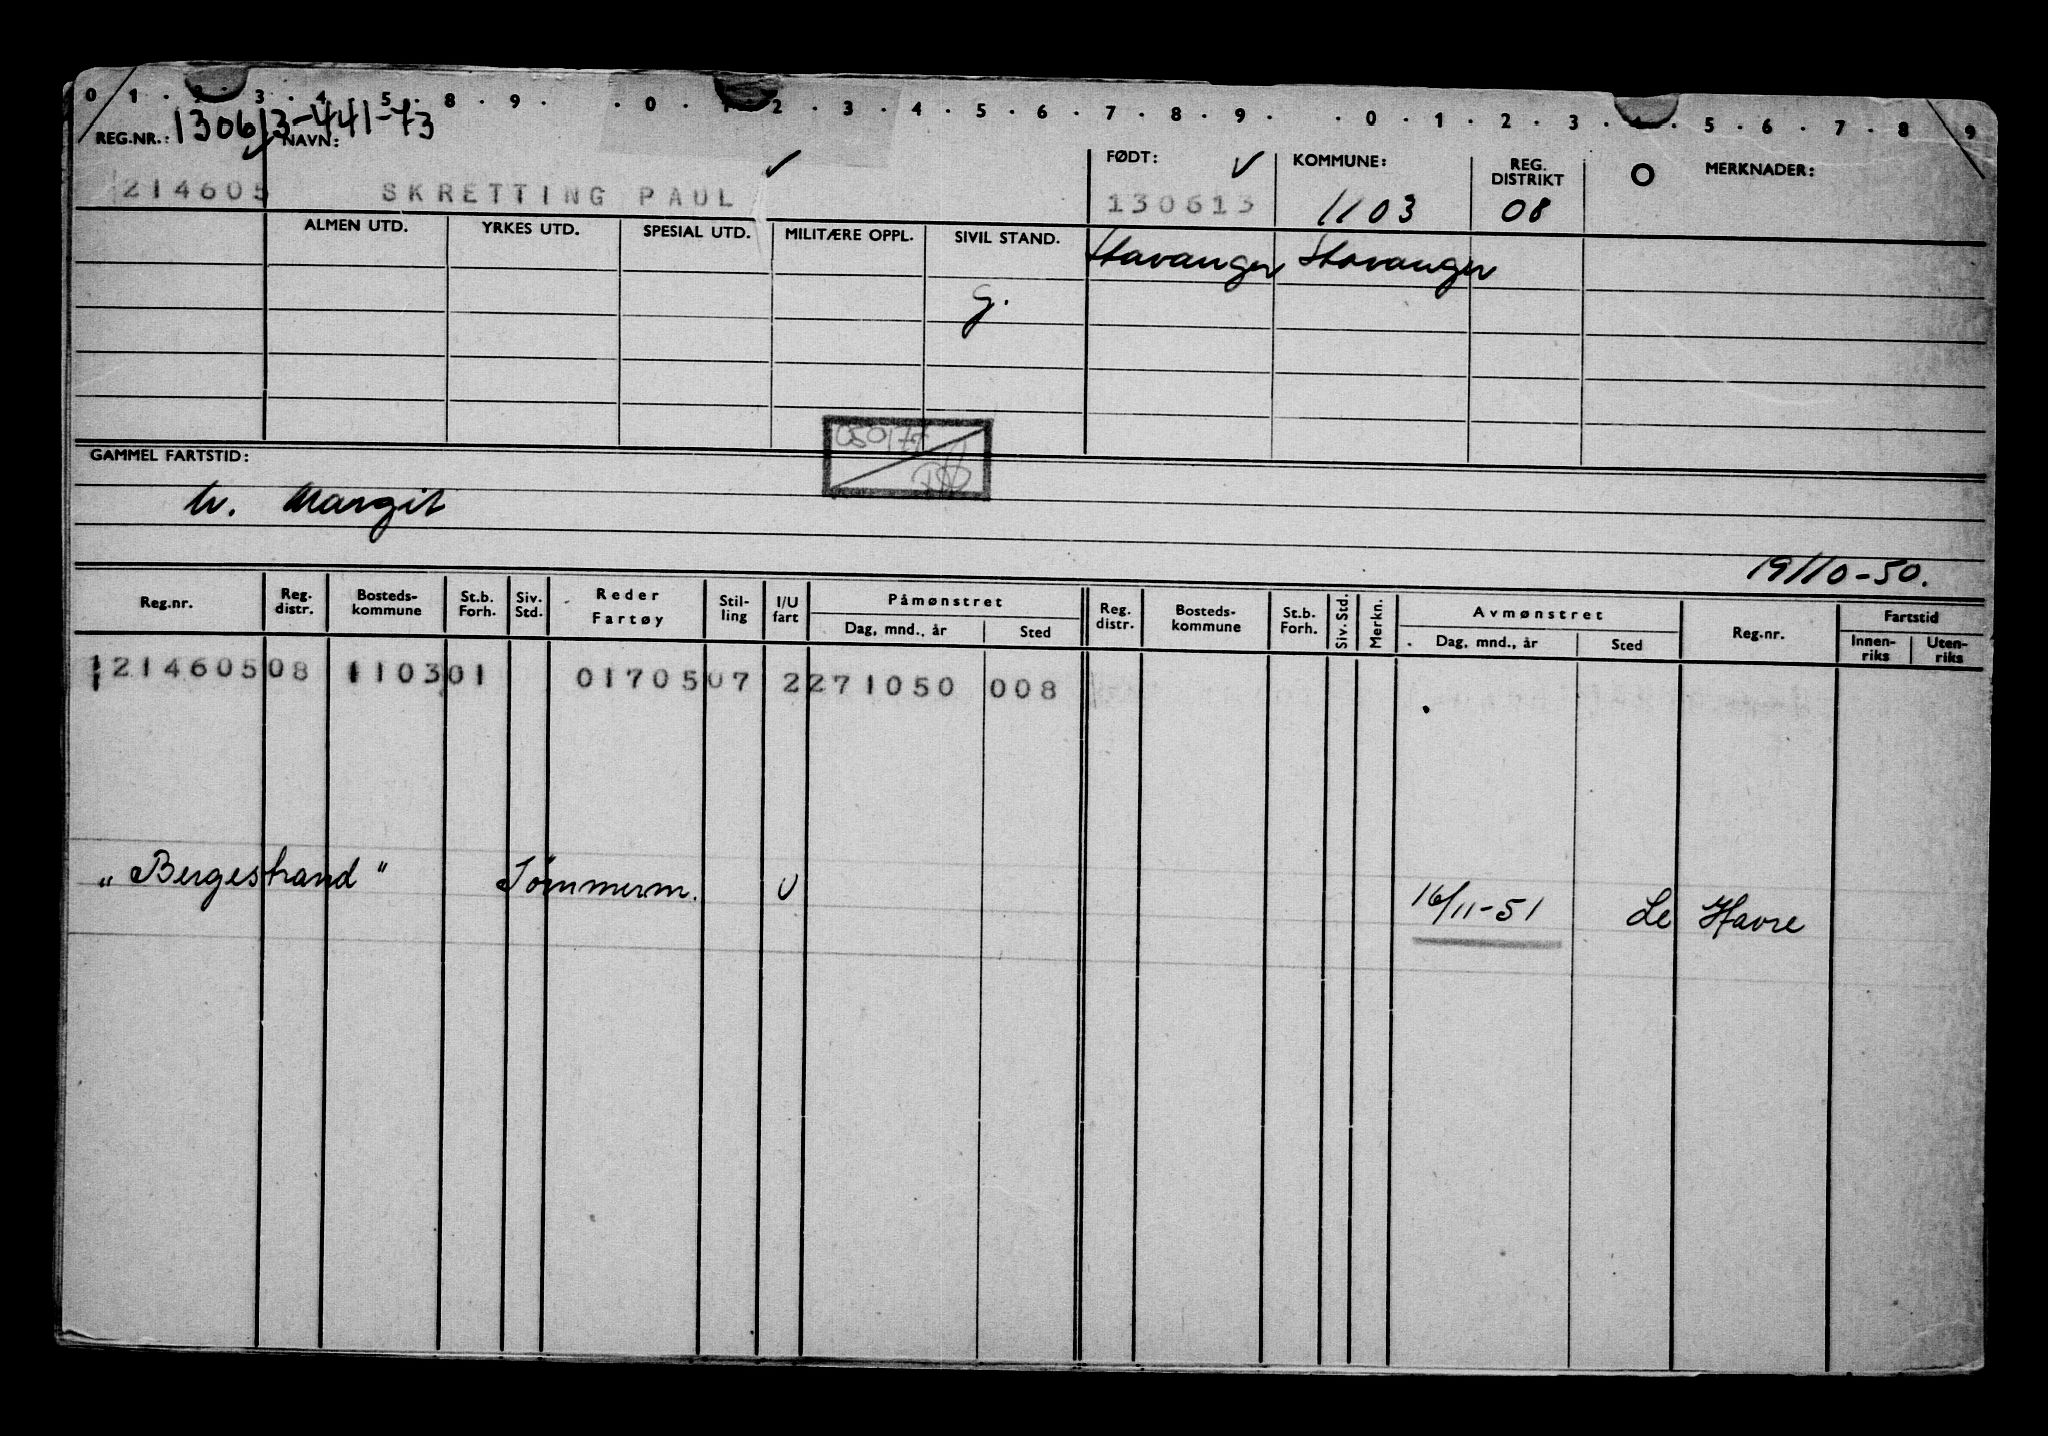 0 1 . 2 . 3 . 4 . 5 . 8 . 9 . . 0 . 1 . 2 . 3 . 4 . 5 . 6 . 7 . 8 . 9 . . 0 . 1 . 2 . 3 . 4 . 5 . 6 . 7 . 8 9
REG.NR.: 130613-441-73 NAVN: FØDT: KOMMUNE: REG. DISTRIKT MERKNADER:
214605 SKRETTING PAUL 130613 1103 08
ALMEN UTD. YRKES UTD. SPESIAL UTD. MILITÆRE OPPL. SIVIL STAND. Stavanger Stavanger
g.
050177
GAMMEL FARTSTID:
h. Margit
19/10-50.
Reg.nr. Reg. distr. Bosteds-kommune St.b. Forh. Siv. Std. Reder Fartøy Stil-ling I/U fart Påmønstret Reg. distr. Bosteds-kommune St.b. Forh. Siv. Std. Merkn. Avmønstret Reg.nr. Fartstid
Dag, mnd., år Sted Dag, mnd., år Sted Innen-riks Uten-riks
1214605 08 1103 01 01705 07 2 271050 008
„Bergestrand" Tømmerm. U 16/11-51 Le Havre